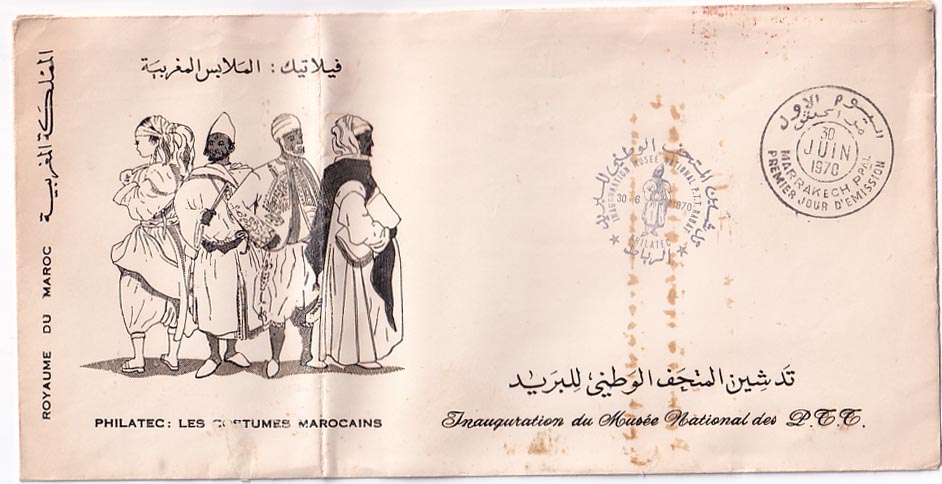 المملكة المغربية
ROYAUME DU MAROC
فيلاتيك: الملابس المغربية
PHILATEC: LES COSTUMES MAROCAINS
المتحف الوطني للبريد
INAUGURATION MUSEE NATIONAL P.T.T RABAT
30 6 1970
PHILATEC
الرباط
اليوم الأول
مراكش
30
JUIN
1970
MARRAKECH PPAL
PREMIER JOUR D'EMISSION
تدشين المتحف الوطني للبريد
Inauguration du Musée National des P.T.T.